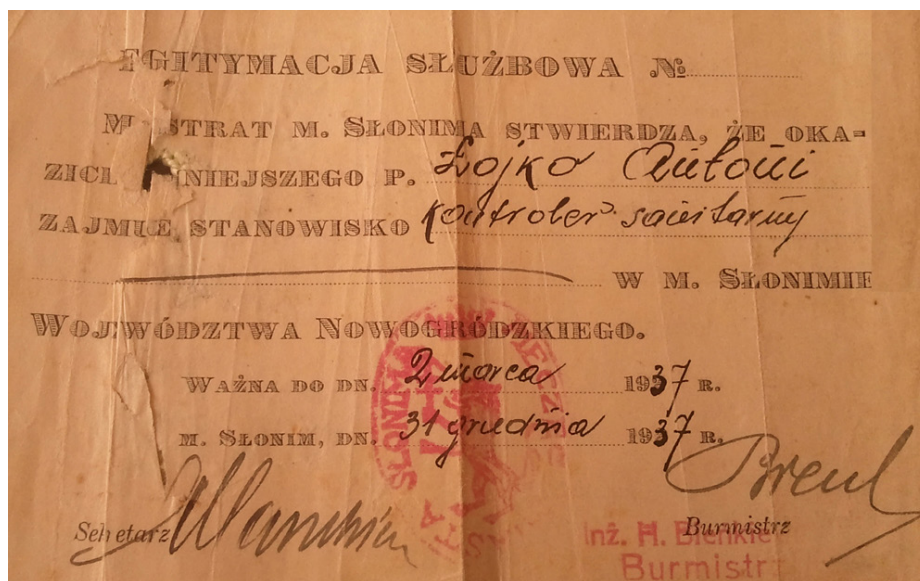 EGITYMACJA SŁUŻBOWA №
M STRAT M. SŁONIMA STWIERDZA, ŻE OKA-
ZICI NINIEJSZEGO P. Łojko Antoni
ZAJMUJE STANOWISKO Kontroler sanitarny
W M. SŁONIMIE
WOJEWÓDZTWA NOWOGRÓDZKIEGO.
WAŻNA DO DN. 2 marca 1937 R.
M. SŁONIM, DN. 31 grudnia 1937 R.
Sekretarz Burmistrz
Inż. H.
Burmistrz
SŁONIMA